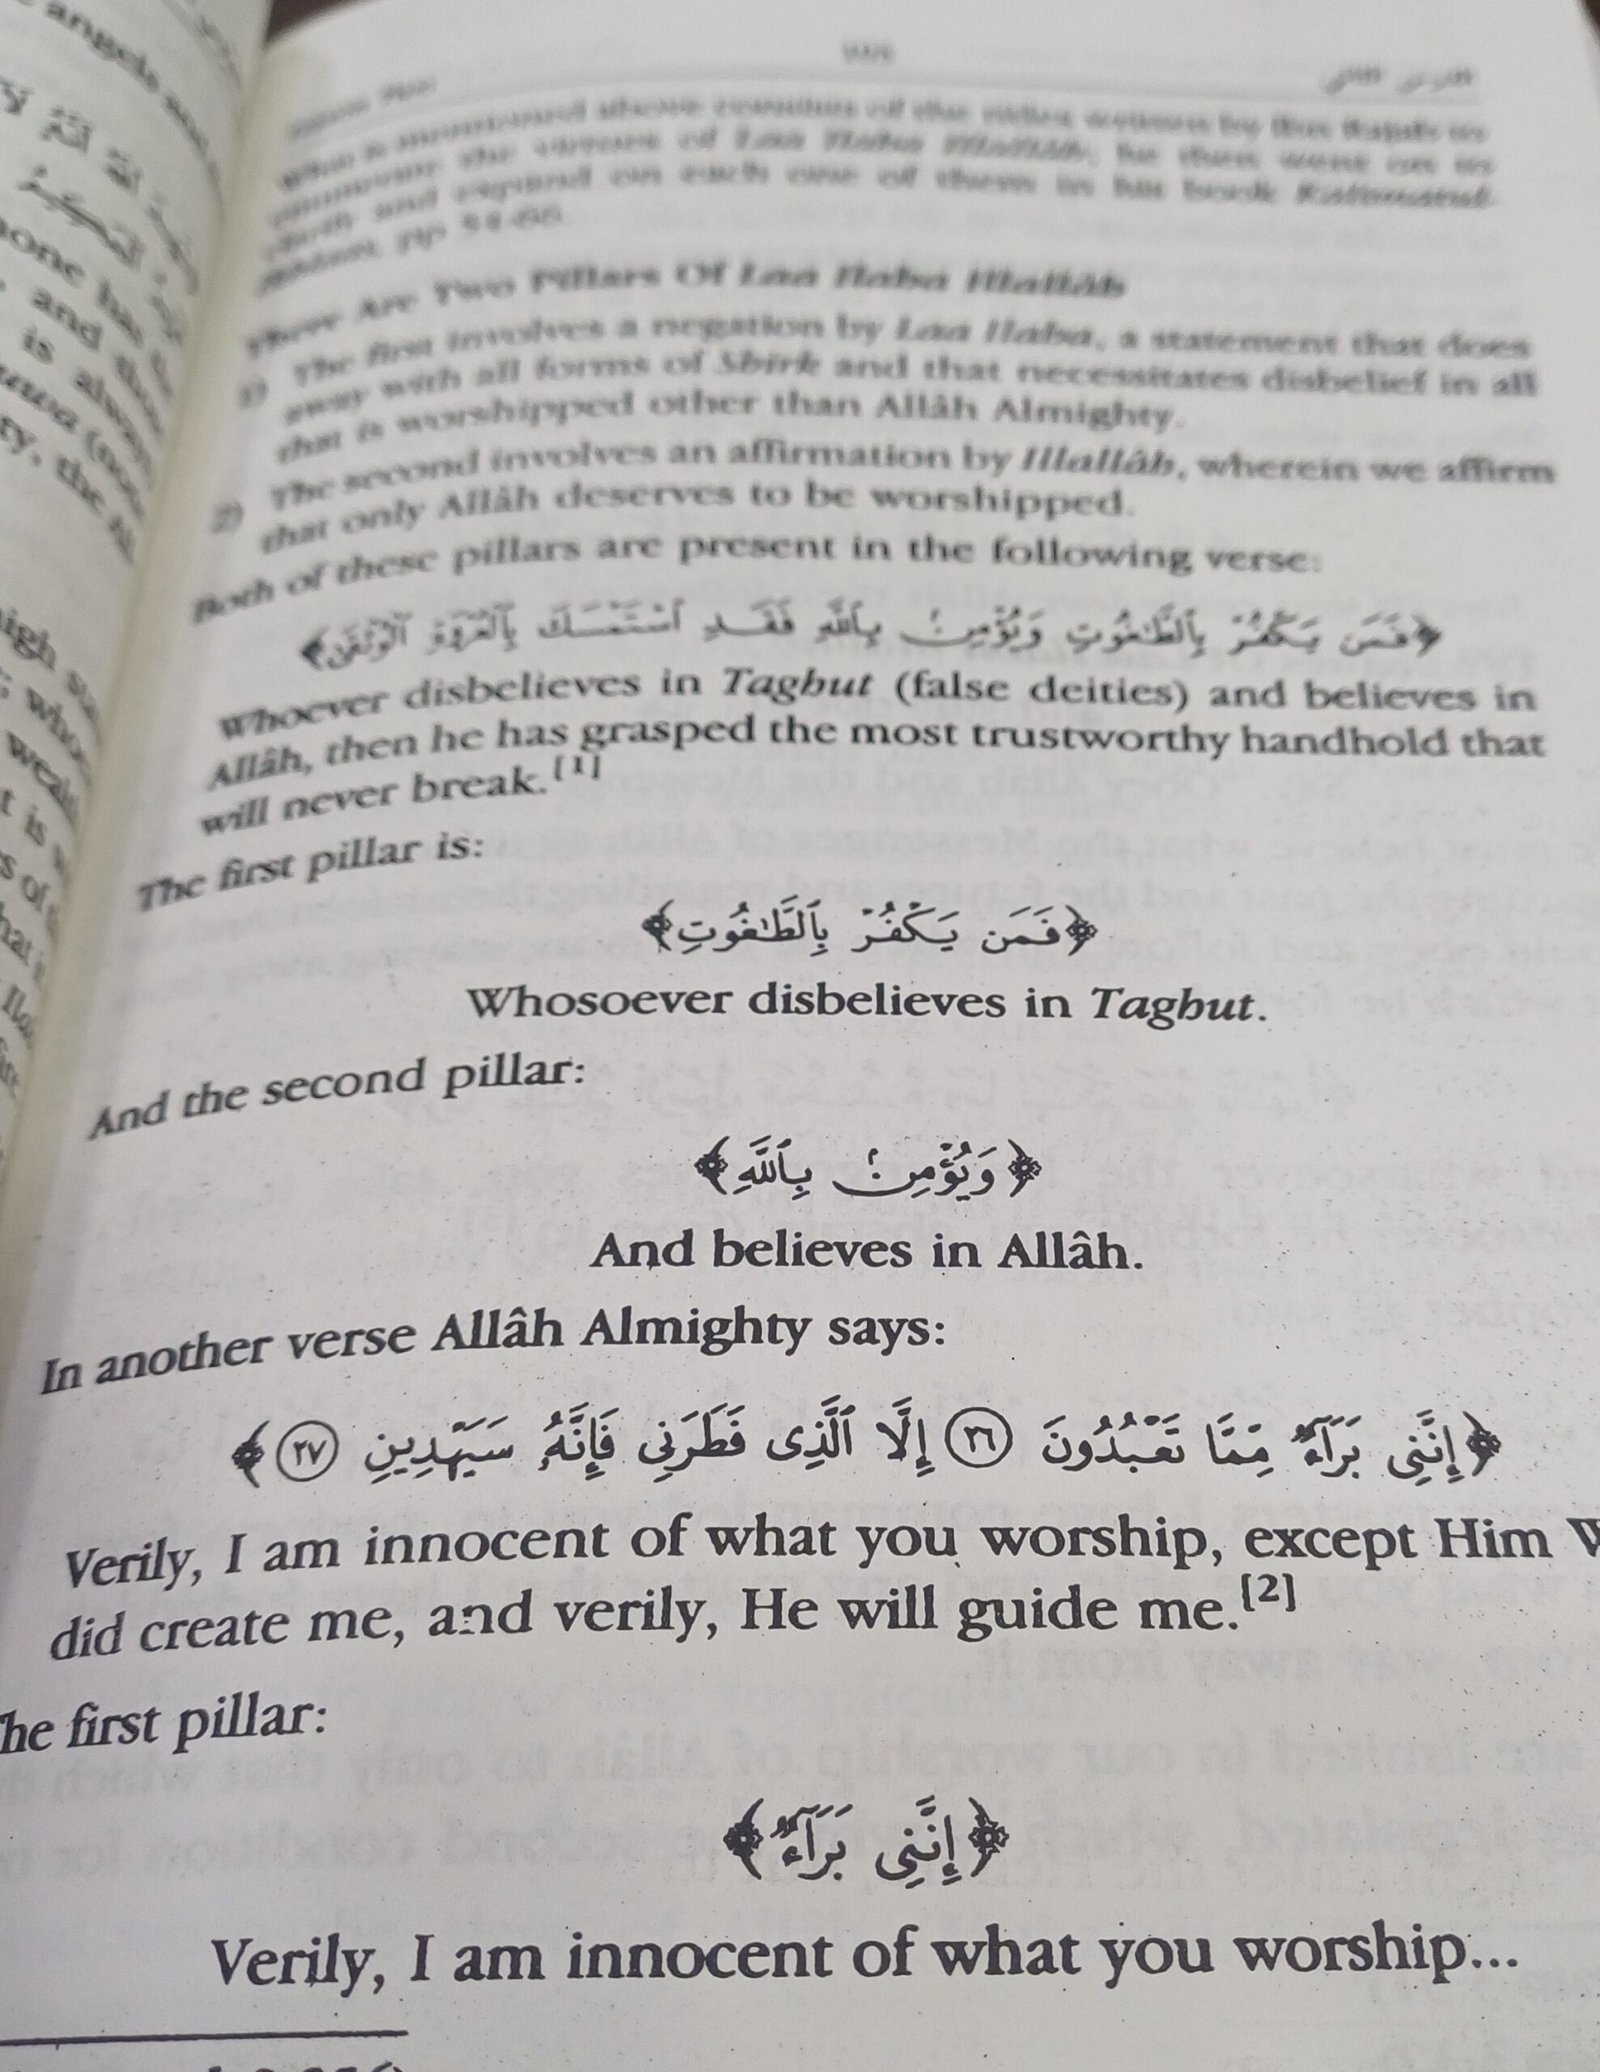 angels
What is mentioned above consists of the virtues of Laa Ilaha Illallâh; he then went on to
each one of them in his book Kalimatul-
There Are Two Pillars Of Laa Ilaha Illallâh
1) The first involves a negation by Laa Ilaha, a statement that does
away with all forms of Shirk and that necessitates disbelief in all
that is worshipped other than Allâh Almighty.
2) The second involves an affirmation by Illallâh, wherein we affirm
that only Allâh deserves to be worshipped.
Both of these pillars are present in the following verse:
﴿فَمَن يَكْفُرْ بِٱلطَّٰغُوتِ وَيُؤْمِنۢ بِٱللَّهِ فَقَدِ ٱسْتَمْسَكَ بِٱلْعُرْوَةِ ٱلْوُثْقَىٰ﴾
Whoever disbelieves in Taghut (false deities) and believes in
Allâh, then he has grasped the most trustworthy handhold that
will never break.[1]
The first pillar is:
﴿فَمَن يَكْفُرْ بِٱلطَّٰغُوتِ﴾
Whosoever disbelieves in Taghut.
And the second pillar:
﴿وَيُؤْمِنۢ بِٱللَّهِ﴾
And believes in Allâh.
In another verse Allâh Almighty says:
﴿إِنَّنِى بَرَآءٌ مِّمَّا تَعْبُدُونَ ٢٦ إِلَّا ٱلَّذِى فَطَرَنِى فَإِنَّهُۥ سَيَهْدِينِ ٢٧﴾
Verily, I am innocent of what you worship, except Him W
did create me, and verily, He will guide me.[2]
he first pillar:
﴿إِنَّنِى بَرَآءٌ﴾
Verily, I am innocent of what you worship...